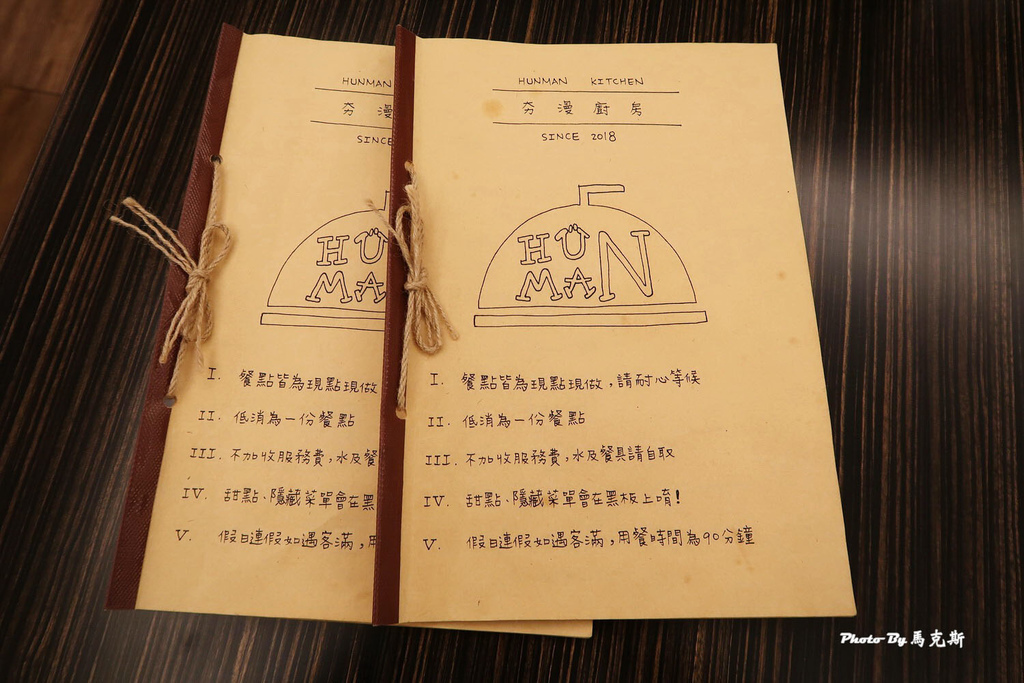 HUNMAN
夯 漫
SINCE
HÜ
MA
I. 餐點皆為現點現做
II. 低消為一份餐點
III. 不加收服務費，水及餐
IV. 甜點、隱藏菜單會在黑
V. 假日連假如遇客滿，用
HUNMAN KITCHEN
夯 漫 廚 房
SINCE 2018
HÜN
MAN
I. 餐點皆為現點現做，請耐心等候
II. 低消為一份餐點
III. 不加收服務費，水及餐具請自取
IV. 甜點、隱藏菜單會在黑板上唷！
V. 假日連假如遇客滿，用餐時間為90分鐘
Photo By 馬克斯